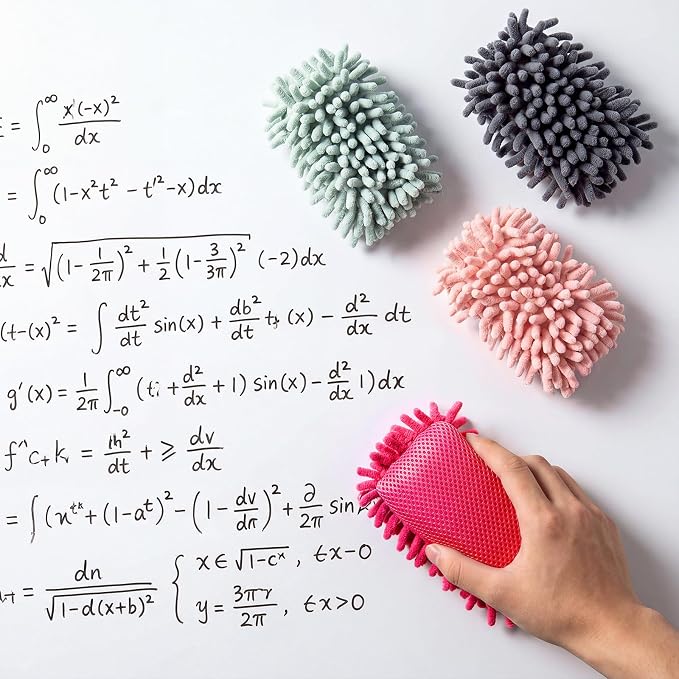 = ∫₀^∞ x(-x)²/dx
= ∫₀^∞ (1-x²t² - t'²-x)dx
d/x = √((1-1/2π)² + 1/2(1-3/3π)²) (-2)dx
(t-(x)² = ∫ dt²/dt sin(x) + db²/dt (x) - d²/dx dt
g'(x) = 1/2π ∫₋₀^∞ (t + d²/dx + 1) sin(x) - d²/dx 1)dx
= /dt + ≥ dv/dx
= ∫ + (1-aᵗ)² - (1 - dv/dn)² + ∂/2π sin
= dn/√(1-d(x+b)²) { x ∈ √(1-cˣ), t×-0
y = 3πr/2π, t×>0